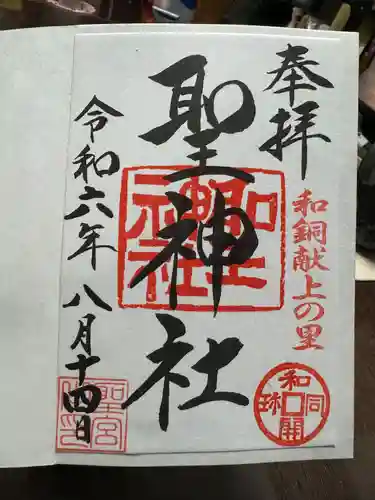 奉拝
和銅献上の里
聖神社
令和六年八月十四日
聖神社
和同開珎